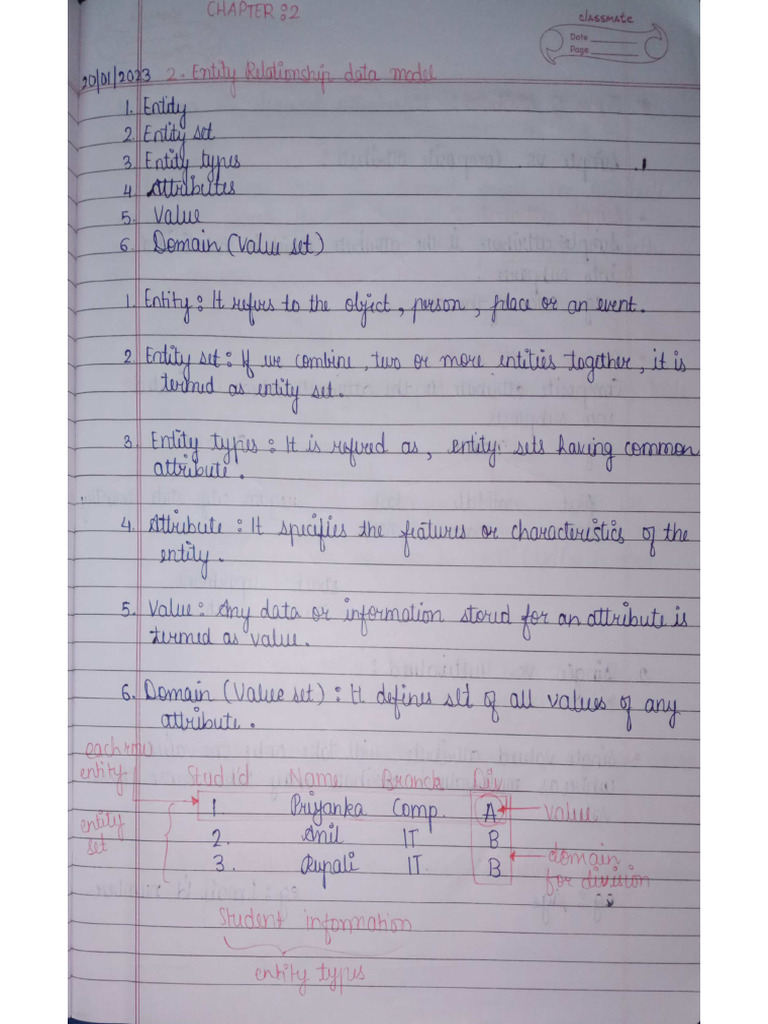 CHAPTER :2
classmate
Date
Page
20/01/2023 2. Entity Relationship data model
1. Entity
2. Entity set
3 Entity types
4 Attributes
5. Value
6. Domain (Value set)
1. Entity : It refers to the object, person, place or an event.
2 Entity set : If we combine, two or more entities together, it is
termed as entity set.
3. Entity types : It is refered as, entity sets having common
attribute.
4. Attribute : It specifies the features or characteristics of the
entity.
5. Value : Any data or information stored for an attribute is
termed as value.
6. Domain (Value set) : It defines set of all values of any
attribute.
each row
entity
Stud id Name Branch Div
1 Priyanka Comp. A value
entity
set
2. Anil IT B
3. Rupali IT B
domain
for division
Student information
entity types